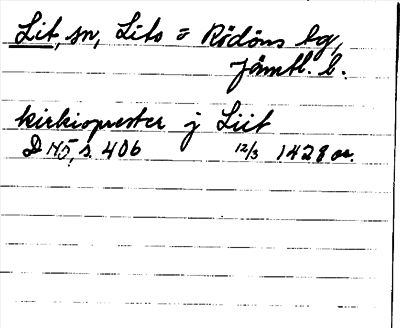 Lit, sn, Lits o Rödöns hg,
Jämtl. l.
kirkioprester j Liit
D N 5, s. 406 12/3 1428 or.